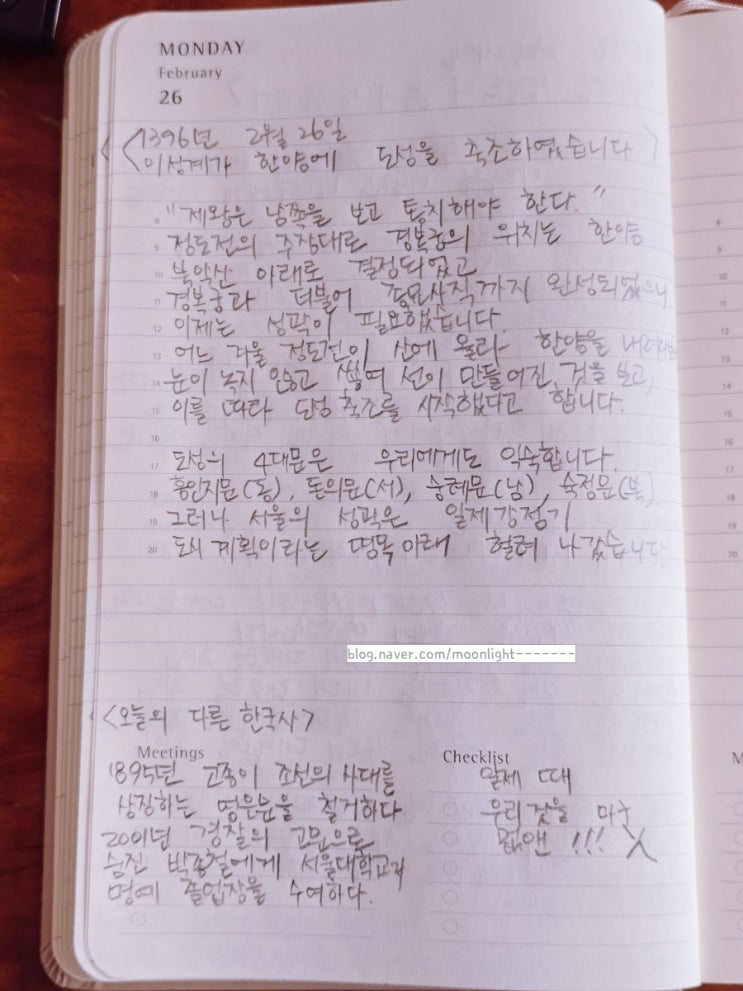 MONDAY
February
26
<1396년 2월 26일
이성계가 한양에 도성을 축조하였습니다>
8 "제왕은 남쪽을 보고 통치해야 한다."
9 정도전의 주창대로 경복궁의 위치는 한양
10 북악산 아래로 결정되었고
11 경복궁과 더불어 종묘사직까지 완성되었으니
12 이제는 성곽이 필요했습니다.
13 어느 겨울 정도전이 산에 올라 한양을
14 눈이 녹지 않고 쌓여 선이 만들어진 것을 보고,
15 이를 따라 도성 축조를 시작했다고 합니다.
16
17 도성의 4대문은 우리에게도 익숙합니다.
18 흥인지문(동), 돈의문(서), 숭례문(남), 숙정문(북).
19 그러나 서울의 성곽은 일제강점기
20 도시 계획이라는 명목 아래 헐려 나갔습니다
blog.naver.com/moonlight-------
<오늘의 다른 한국사>
Meetings
1895년 고종이 조선의 사대를
상징하는 영은문을 철거하다
2001년 경찰의 고문으로
숨진 박종철에게 서울대학교가
명예 졸업장을 수여하다.
Checklist
일제 때
우리 것을 마구
없앤 !!!